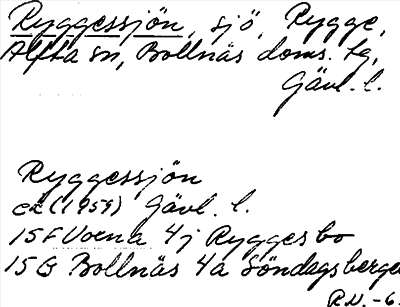 Ryggessjön, sjö, Rygge,
Alfta sn, Bollnäs doms. tg,
Gävl. l.
Ryggessjön
ek (1959) Gävl. l.
15F Voxna 4j Ryggesbo
15G Bollnäs 4a Söndagsberget
R.N. -6